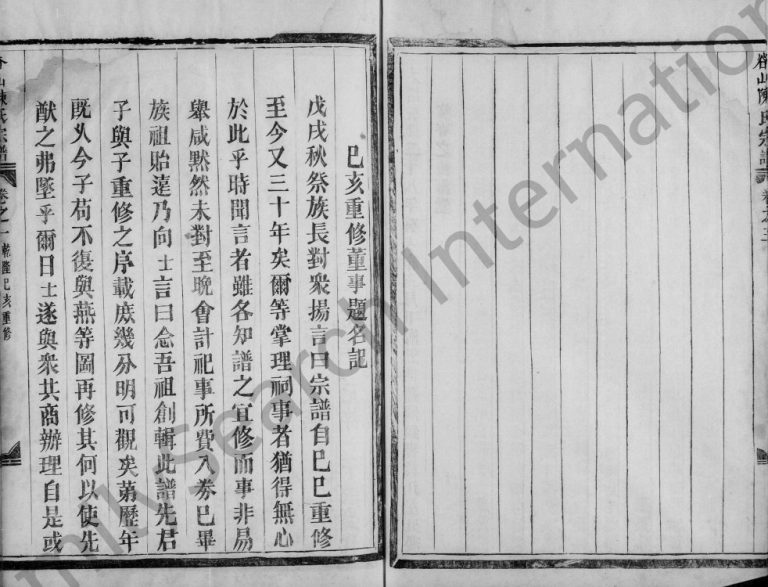 嶐山陳氏宗譜
卷之三
己亥重修董事題名記
戊戌秋祭族長對眾揚言曰宗譜自己巳重修
至今又三十年矣爾等掌理祠事者猶得無心
於此乎時聞言者雖各知譜之宜修而事非易
舉咸默然未對至晚會計祀事所費入券已畢
族祖貽遠乃向士言曰念吾祖創輯此譜先君
子與子重修之序載庶幾分明可觀矣第歷年
既乆今子苟不復與燕等圖再修其何以使先
猷之弗墜乎爾日士遂與眾共商辦理自是或
山陳氏宗譜
卷之一
乾隆己亥重修
Family Search International